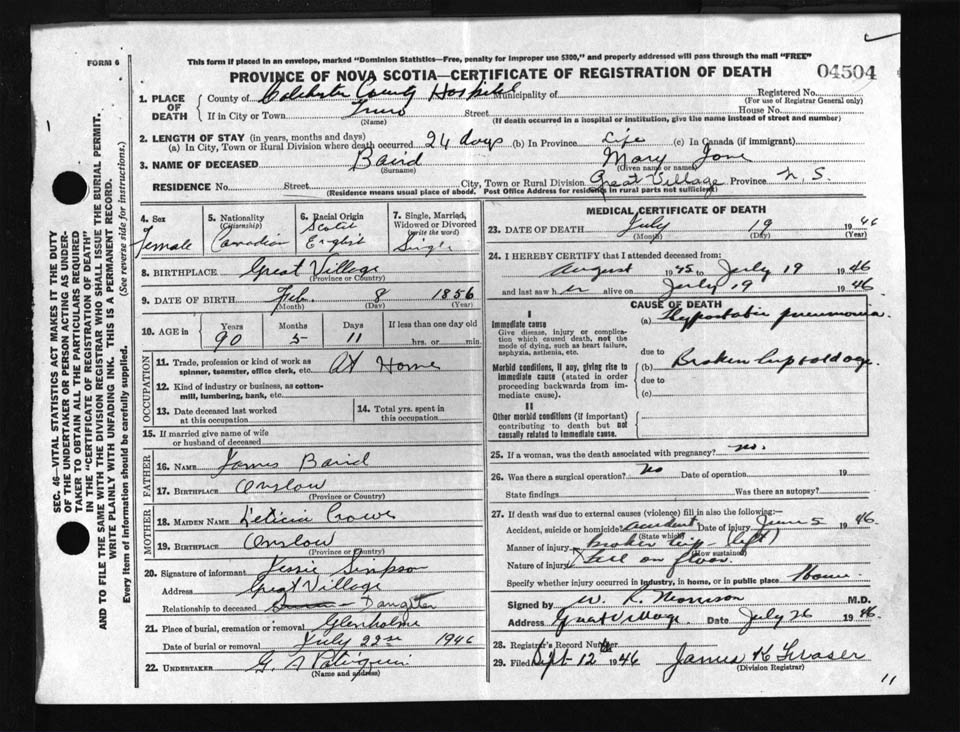 FORM 6
This form if placed in an envelope, marked "Dominion Statistics—Free, penalty for improper use $300," and properly addressed will pass through the mail "FREE"
PROVINCE OF NOVA SCOTIA—CERTIFICATE OF REGISTRATION OF DEATH
04504
SEC. 46—VITAL STATISTICS ACT MAKES IT THE DUTY
OF THE UNDERTAKER OR PERSON ACTING AS UNDER-
TAKER TO OBTAIN ALL THE PARTICULARS REQUIRED
IN THE "CERTIFICATE OF REGISTRATION OF DEATH"
AND TO FILE THE SAME WITH THE DIVISION REGISTRAR WHO SHALL ISSUE THE BURIAL PERMIT.
WRITE PLAINLY WITH UNFADING INK. THIS IS A PERMANENT RECORD.
Every item of information should be carefully supplied. (See reverse side for instructions.)
1. PLACE OF DEATH County of Colchester County Hospital Municipality of Registered No.
(For use of Registrar General only)
If in City or Town Truro Street House No.
(Name) (If death occurred in a hospital or institution, give the name instead of street and number)
2. LENGTH OF STAY (in years, months and days)
(a) In City, Town or Rural Division where death occurred 24 days (b) In Province Life (c) In Canada (if immigrant)
3. NAME OF DECEASED Baird Mary Jane
(Surname) (Given name or names)
RESIDENCE No. Street City, Town or Rural Division Great Village Province N. S.
(Residence means usual place of abode. Post Office Address for residents in rural parts not sufficient)
4. Sex Female
5. Nationality (Citizenship) Canadian
6. Racial Origin Scotch English
7. Single, Married, Widowed or Divorced (write the word) Single
8. BIRTHPLACE Great Village
(Province or Country)
9. DATE OF BIRTH Feb. 8 1856
(Month) (Day) (Year)
10. AGE in Years Months Days If less than one day old
90 5 11 hrs. or min.
OCCUPATION
11. Trade, profession or kind of work as spinner, teamster, office clerk, etc. At Home
12. Kind of industry or business, as cotton-mill, lumbering, bank, etc.
13. Date deceased last worked at this occupation
14. Total yrs. spent in this occupation
15. If married give name of wife or husband of deceased
FATHER
16. NAME James Baird
17. BIRTHPLACE Onslow
(Province or Country)
MOTHER
18. MAIDEN NAME Leticia Crowe
19. BIRTHPLACE Onslow
(Province or Country)
20. Signature of informant Jessie Simpson
Address Great Village
Relationship to deceased Daughter
21. Place of burial, cremation or removal Glenholme
Date of burial or removal July 22 1946
22. UNDERTAKER G A Patriquin
(Name and address)
MEDICAL CERTIFICATE OF DEATH
23. DATE OF DEATH July 19 1946
(Month) (Day) (Year)
24. I HEREBY CERTIFY that I attended deceased from:
August 1945 to July 19 1946
and last saw her alive on July 19 1946
CAUSE OF DEATH
I
Immediate cause (a) Hypostatic pneumonia.
Give disease, injury or complication which caused death, not the mode of dying, such as heart failure, asphyxia, asthenia, etc.
due to
(b) Broken hip & old age.
Morbid conditions, if any, giving rise to immediate cause (stated in order proceeding backwards from immediate cause).
due to
(c)
II
Other morbid conditions (if important) contributing to death but not causally related to immediate cause.
25. If a woman, was the death associated with pregnancy? no.
26. Was there a surgical operation? No Date of operation 19
State findings Was there an autopsy?
27. If death was due to external causes (violence) fill in also the following:
Accident, suicide or homicide? accident Date of injury June 5 1946.
(State which)
Manner of injury broken hip - (left)
(How sustained)
Nature of injury fall on floor.
Specify whether injury occurred in industry, in home, or in public place Home
Signed by W. R. Morrison M.D.
Address Great Village. Date July 26 1946
28. Registrar's Record Number
29. Filed Sept 12 1946 James H Fraser
(Division Registrar)
11